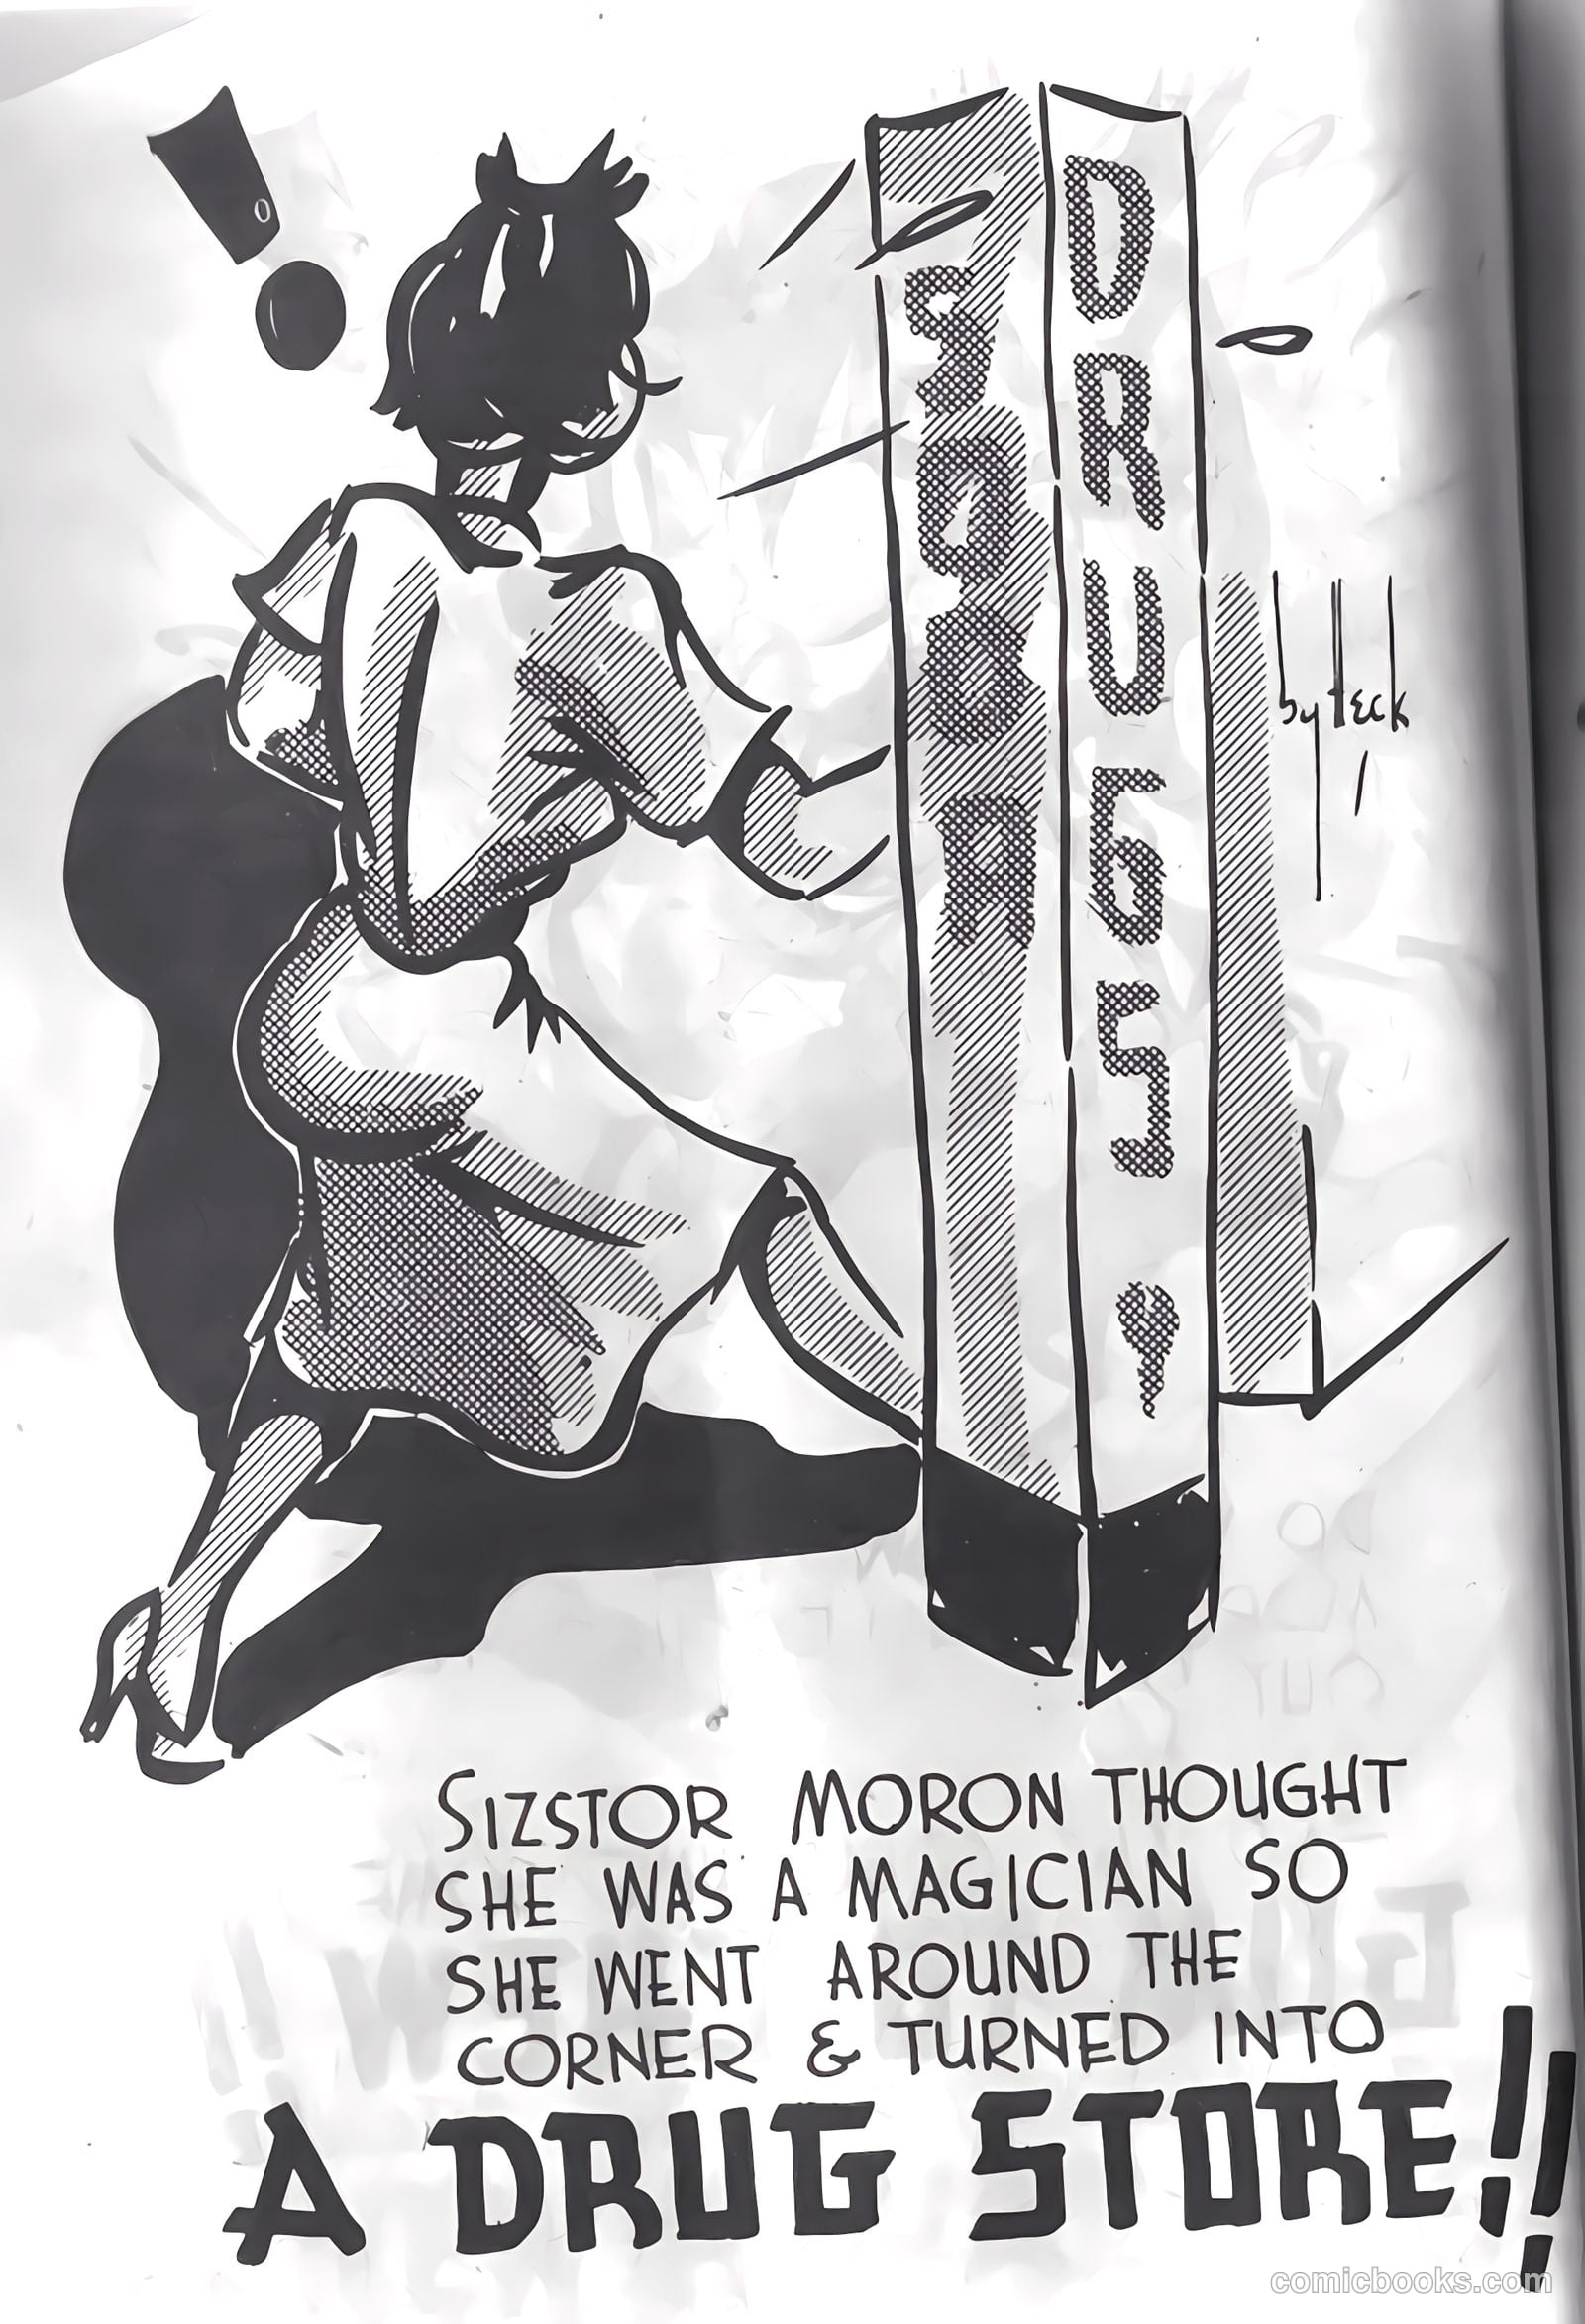 SODA
DRUGS
by Heck
SIZSTOR MORON THOUGHT
SHE WAS A MAGICIAN SO
SHE WENT AROUND THE
CORNER & TURNED INTO
A DRUG STORE!!
comicbooks.com